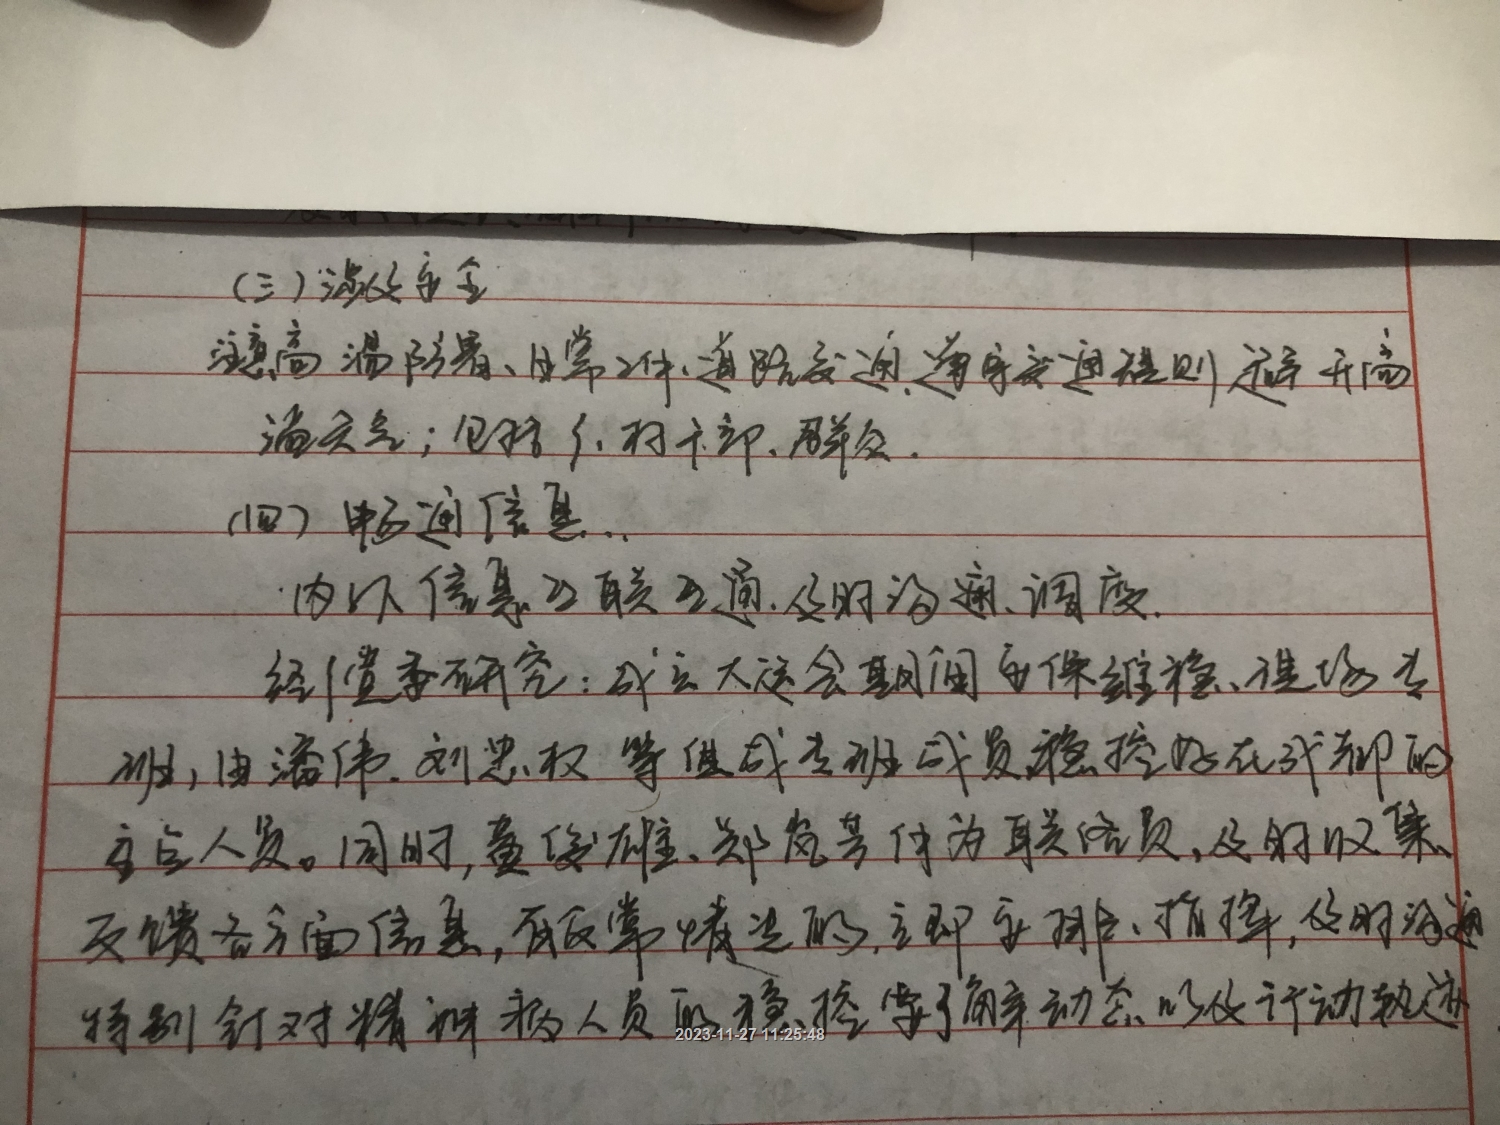 （三）注意安全
注意高温防暑、日常工作、道路交通、遵守交通规则 避开高
温天气；包括乡、村干部、群众.
（四）畅通信息..
内以信息互联互通.及时沟通、调度.
经党委研究：成立大运会期间安保维稳、值场专
班，由潘伟.刘忠权等组成专班成员.稳控好在成都的
重点人员。同时，黄俊雄、郑岚芸作为联络员，及时收集、
反馈各方面信息，有反常情况的.立即安排、指挥，及时沟通
特别针对精神病人员的稳控 要了解动态 以及行动轨迹
2023-11-27 11:25:48